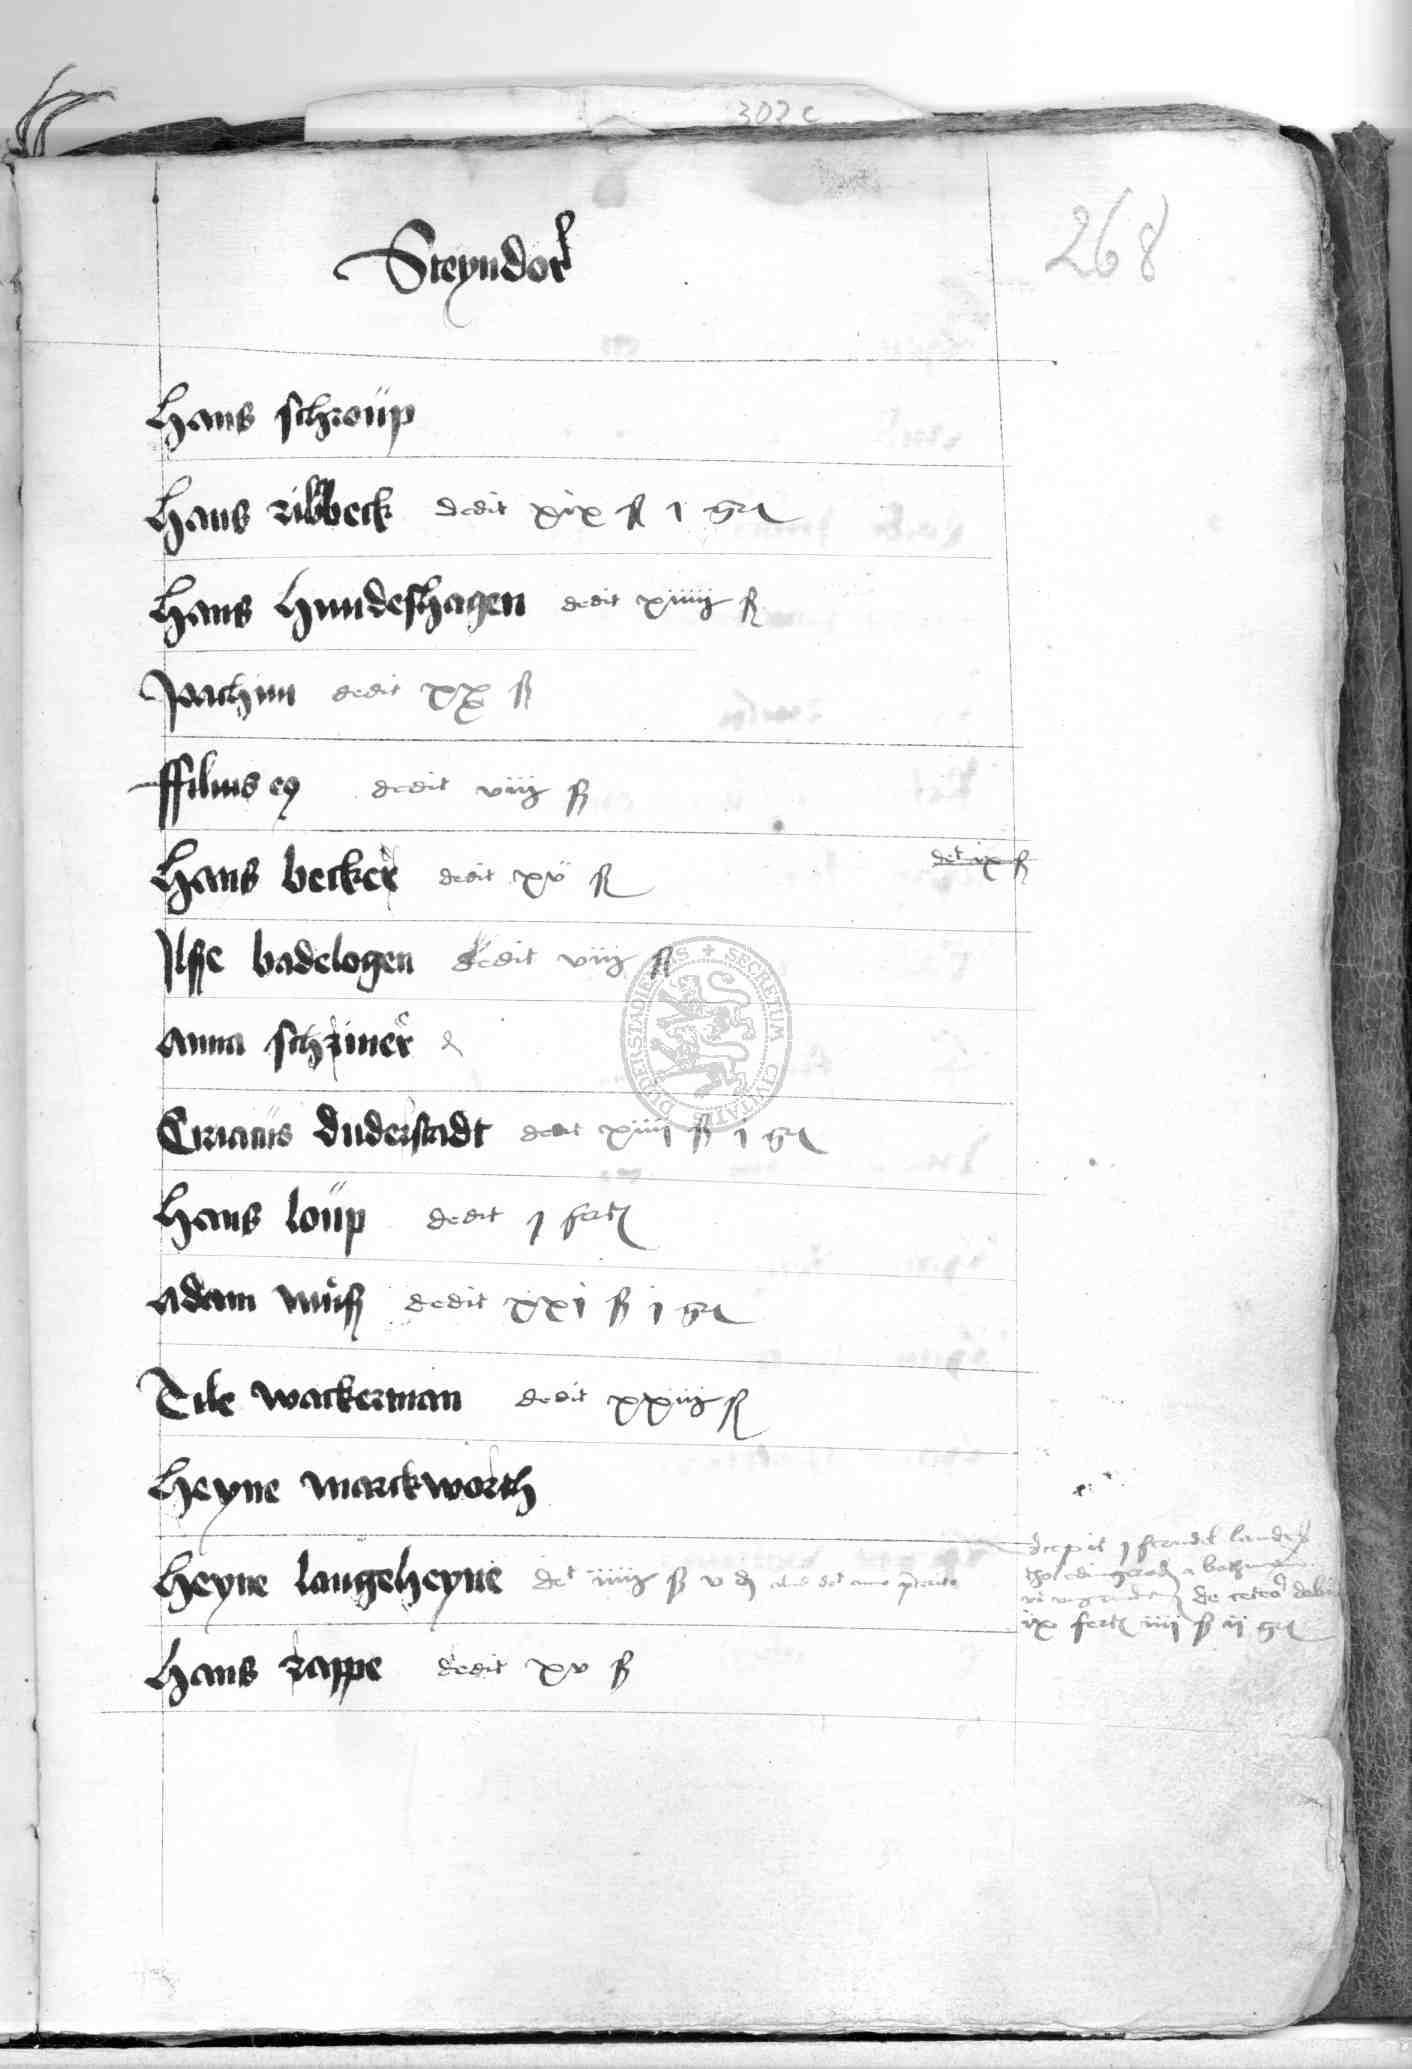 302 c
268
Steyndor
Hans schroüp
Hans ribbeck dedit xix ß i gr
Hans Hundeshagen dedit xiiij ß
Joachim dedit xx ß
ffilius eq dedit viij ß
Hans becker dedit xv ß
det ix ß
Ilße badelogen dedit viij ß
Anna schriner
Ciriacus duderstadt dedit xiiij ß j gr
Hans loüp dedit j fert
Adam dedit xxi ß j gr
Tile wackerman dedit xxiij ß
Heyne marckworth
Heyne langeheyne det iiij ß v
ix fert iiij ß ij gr
Hans zappe dedit xv ß
SECRETUM CIVITATIS DUDERSTADIENSIS